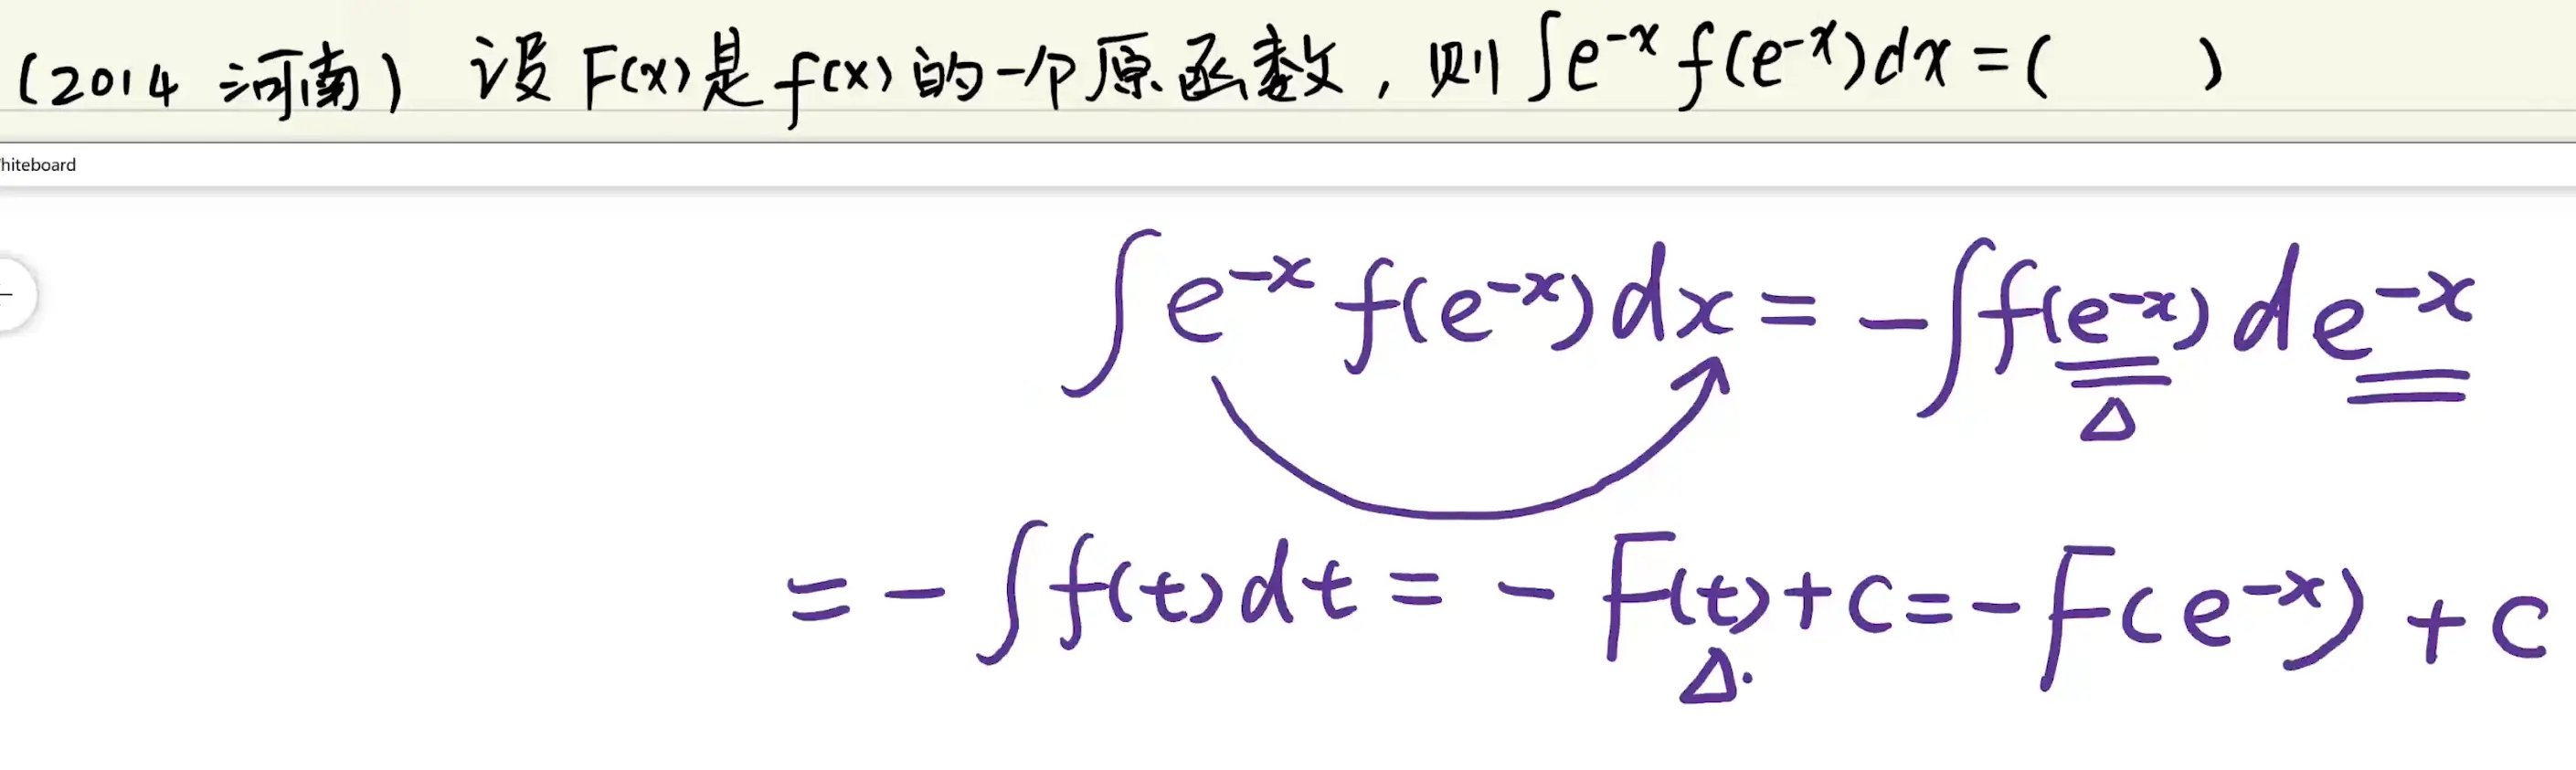 (2014 河南) 设 F(x)是 f(x)的一个原函数，则 ∫e⁻ˣ f(e⁻ˣ)dx = (    )
hiteboard
∫e⁻ˣ f(e⁻ˣ)dx = -∫f(e⁻ˣ)de⁻ˣ
Δ
= -∫f(t)dt = -F(t)+C = -F(e⁻ˣ)+C
Δ.